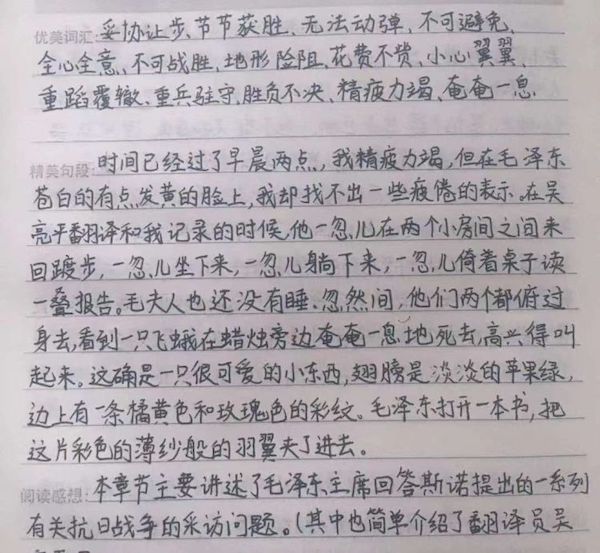 优美词汇:妥协让步、节节获胜、无法动弹、不可避免、
全心全意、不可战胜、地形险阻、花费不赀、小心翼翼、
重蹈覆辙、重兵驻守、胜负不决、精疲力竭、奄奄一息
精美句段:时间已经过了早晨两点,我精疲力竭,但在毛泽东
苍白的有点发黄的脸上,我却找不出一些疲倦的表示。在吴
亮平翻译和我记录的时候,他一忽儿在两个小房间之间来
回踱步,一忽儿坐下来,一忽儿躺下来,一忽儿倚着桌子读
一叠报告。毛夫人也还没有睡。忽然间,他们两个都俯过
身去,看到一只飞蛾在蜡烛旁边奄奄一息地死去,高兴得叫
起来。这确是一只很可爱的小东西,翅膀是淡淡的苹果绿,
边上有一条橘黄色和玫瑰色的彩纹。毛泽东打开一本书,把
这片彩色的薄纱般的羽翼夹了进去。
阅读感想:本章节主要讲述了毛泽东主席回答斯诺提出的一系列
有关抗日战争的采访问题。(其中也简单介绍了翻译员吴